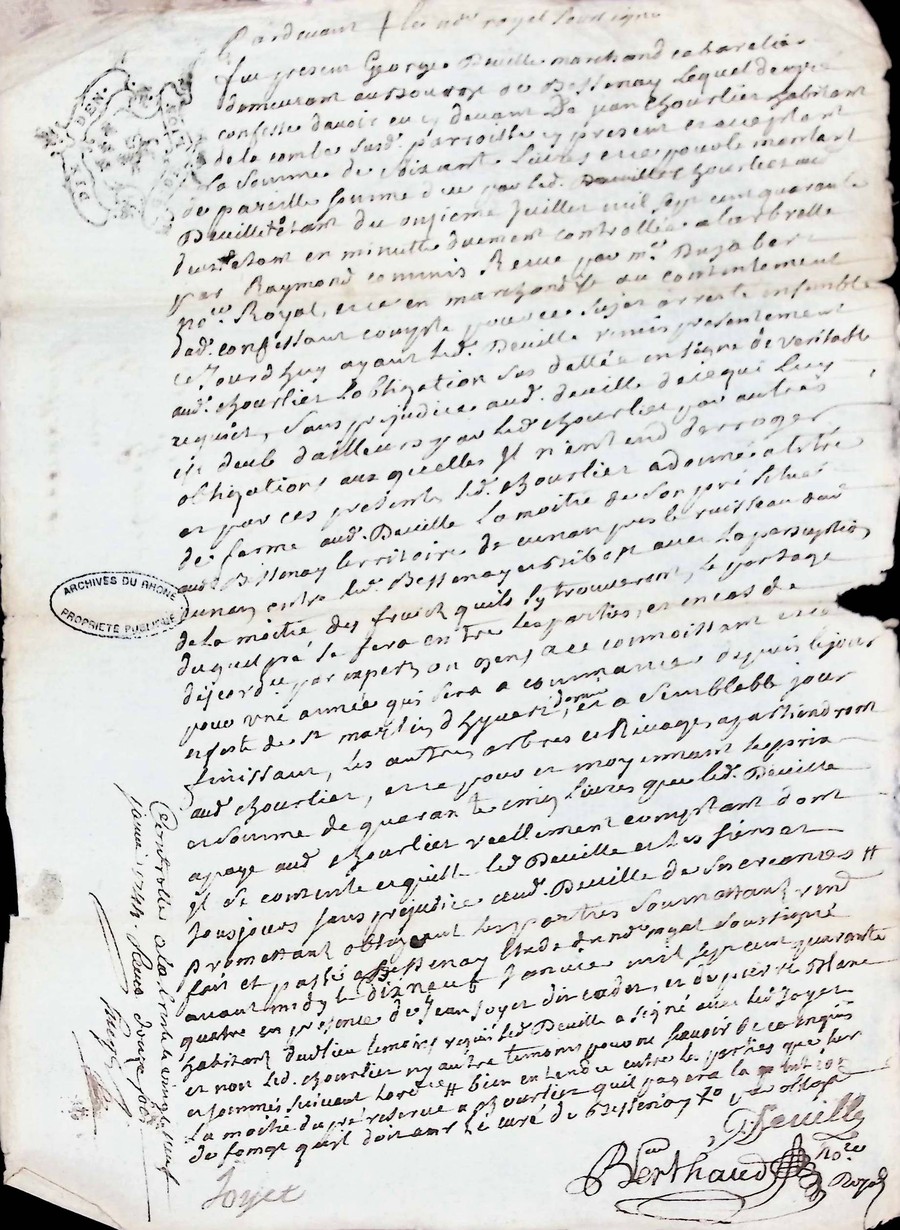 Pardevant le no.re royal soussigné
fut present George Deville marchand cabaretie
demeurant au Bourg de Bessenay lequel de gré
confesse davoir eu cy devant De jean Chourlier habitant
de la combe susd. parroisse cy present et acceptant
la somme de soixante Livres et ce pour le montant
de pareille somme due par led. Chourlier au
Deville etant du onzieme Juillet mil sept cent quarante
deux etant en minutte duement controllée a Larbrelle
par Raymond commis Receue par me. Dujabert
no.re Royal, et ce en marchand. au contentement
dud. confessant compte pour ce sujet arresté ensemble
ce Jourdhuy ayant led. Deville remis presentement
aud. chourlier Lobligation sus dattée en signe de veritable
request, sans prejudice aud. deville de ce qui luy
est deub d'ailleurs par led. chourlier par autres
obligations aux quelles Il n'entend derroger
et par ces presentes led. Chourlier a donné a titre
de ferme aud. Deville La moitié de son pré situé
aud. Bessenay territoire de cunan pres le ruisseau dud.
cunan entre led. Bessenay et Bibost avec la perception
de la moitié des fruicts quils sy trouveront, le partage
duquel pré se fera entre les parties, et en cas de
discorde par experts ou gens a ce connoissant et ce
pour une année qui sera a commancer depuis le jour
et feste de st martin d'hyver dernier, et a semblable jour
finissant, les autres arbres et Rivages apartiendront
aud. chourlier, et ce pour et moyennant le prix
et somme de quarante cinq Livres que led. Deville
a payé aud. chourlier reellement comptant dont
il se contente et quitte led. Deville et les siens et
tousjours sans prejudice aud. Deville de ses creances #
Promettant obligeant les parties soumettant renon
fait et passé a Bessenay Etude du no.re royal soussigné
avant midy le dix neuf Janvier mil sept cent quarante
quatre en presence de Jean Joyet dit cadet, et de pierre Blanc
habitant dud. lieu temoins requis led. Deville a signé avec led. Joyet
et non led. chourlier ny autre temoin pour ne sçavoir de ce enquis
et sommés suivant Lord.ce # bien entendu entre les parties que sur
La moitié du pré reservé a Chourlier quil payera la pention
de fonds quil doit au s.r curé de Bessenay
Deville
Berthaud no.re Royal
Joyet
Controllé a Larbrelle le vingt neuf
janvier 1744. Receu douze sols
ARCHIVES DU RHONE
PROPRIETE PUBLIQUE